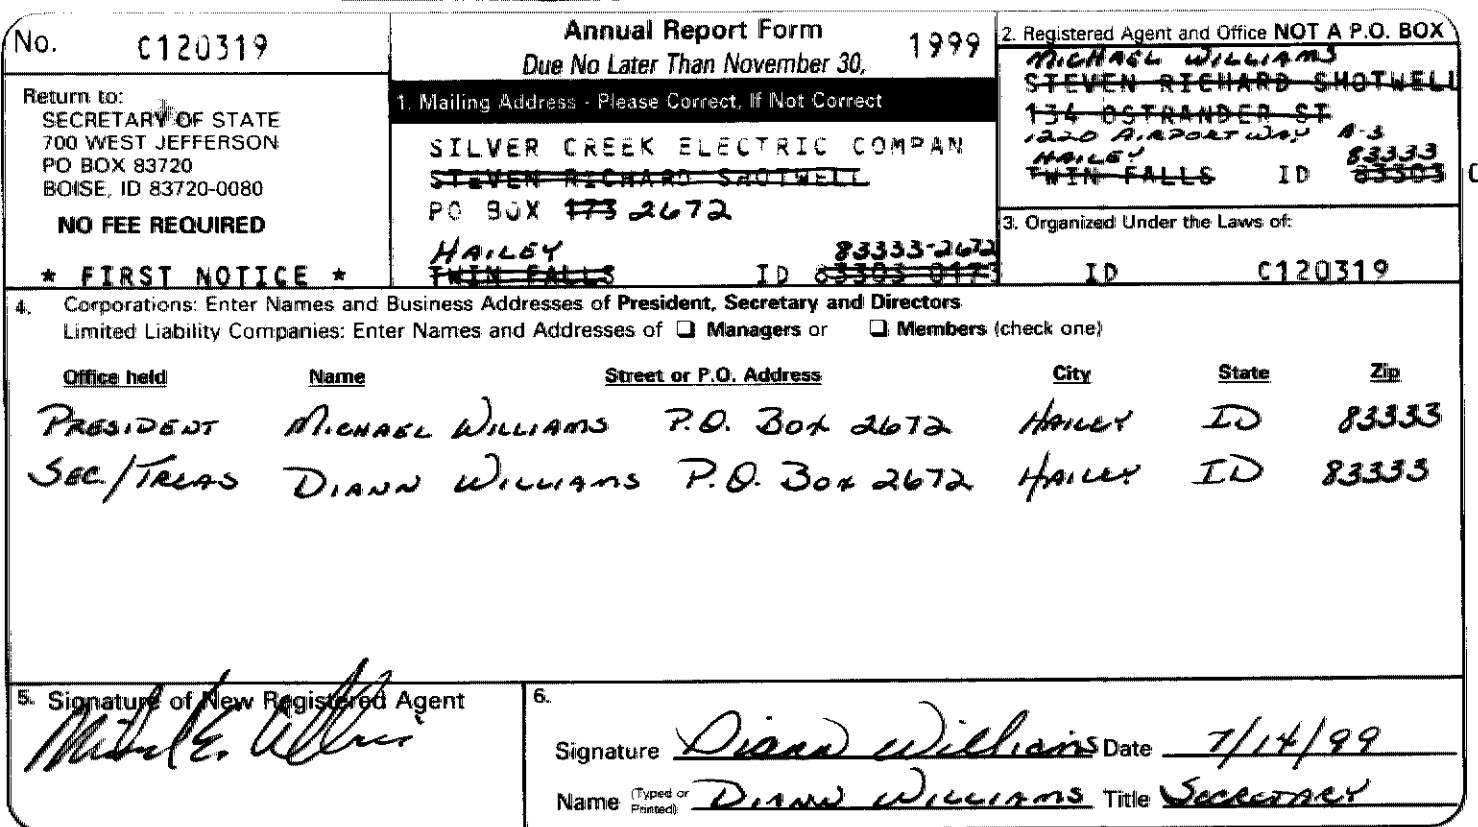 No. C120319
Annual Report Form
Due No Later Than November 30, 1999
Return to:
SECRETARY OF STATE
700 WEST JEFFERSON
PO BOX 83720
BOISE, ID 83720-0080
NO FEE REQUIRED
* FIRST NOTICE *
1. Mailing Address - Please Correct, If Not Correct
SILVER CREEK ELECTRIC COMPAN
STEVEN RICHARD SHOTWELL
PO BOX 173 2672
HAILEY 83333-2672
TWIN FALLS ID 83303-0173
2. Registered Agent and Office NOT A P.O. BOX
MICHAEL WILLIAMS
STEVEN RICHARD SHOTWELL
134 OSTRANDER ST
1220 AIRPORT WAY A-3
HAILEY 83333
TWIN FALLS ID 83303
3. Organized Under the Laws of:
ID C120319
4. Corporations: Enter Names and Business Addresses of President, Secretary and Directors
Limited Liability Companies: Enter Names and Addresses of ❑ Managers or ❑ Members (check one)
Office held Name Street or P.O. Address City State Zip
PRESIDENT MICHAEL WILLIAMS P.O. BOX 2672 HAILEY ID 83333
SEC./TREAS DIANN WILLIAMS P.O. BOX 2672 HAILEY ID 83333
5. Signature of New Registered Agent
Michael E. Williams
6.
Signature Diann Williams Date 7/14/99
Name (Typed or Printed) DIANN WILLIAMS Title SECRETARY